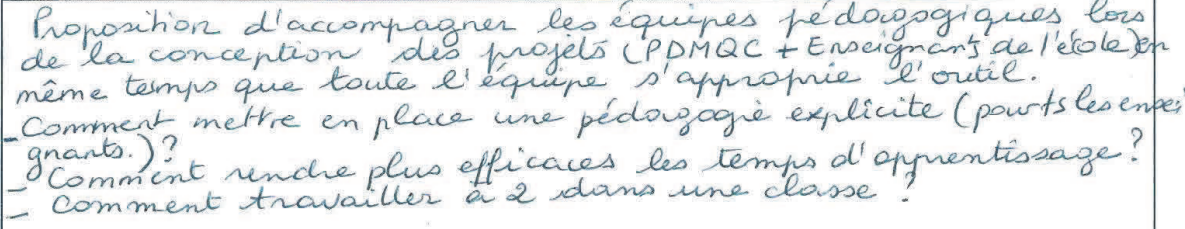 Proposition d'accompagner les équipes pédagogiques lors
de la conception des projets (PDMQC + Enseignants de l'école) en
même temps que toute l'équipe s'approprie l'outil.
- Comment mettre en place une pédagogie explicite (pour ts les ensei
gnants.)?
- Comment rendre plus efficaces les temps d'apprentissage?
- Comment travailler à 2 dans une classe?